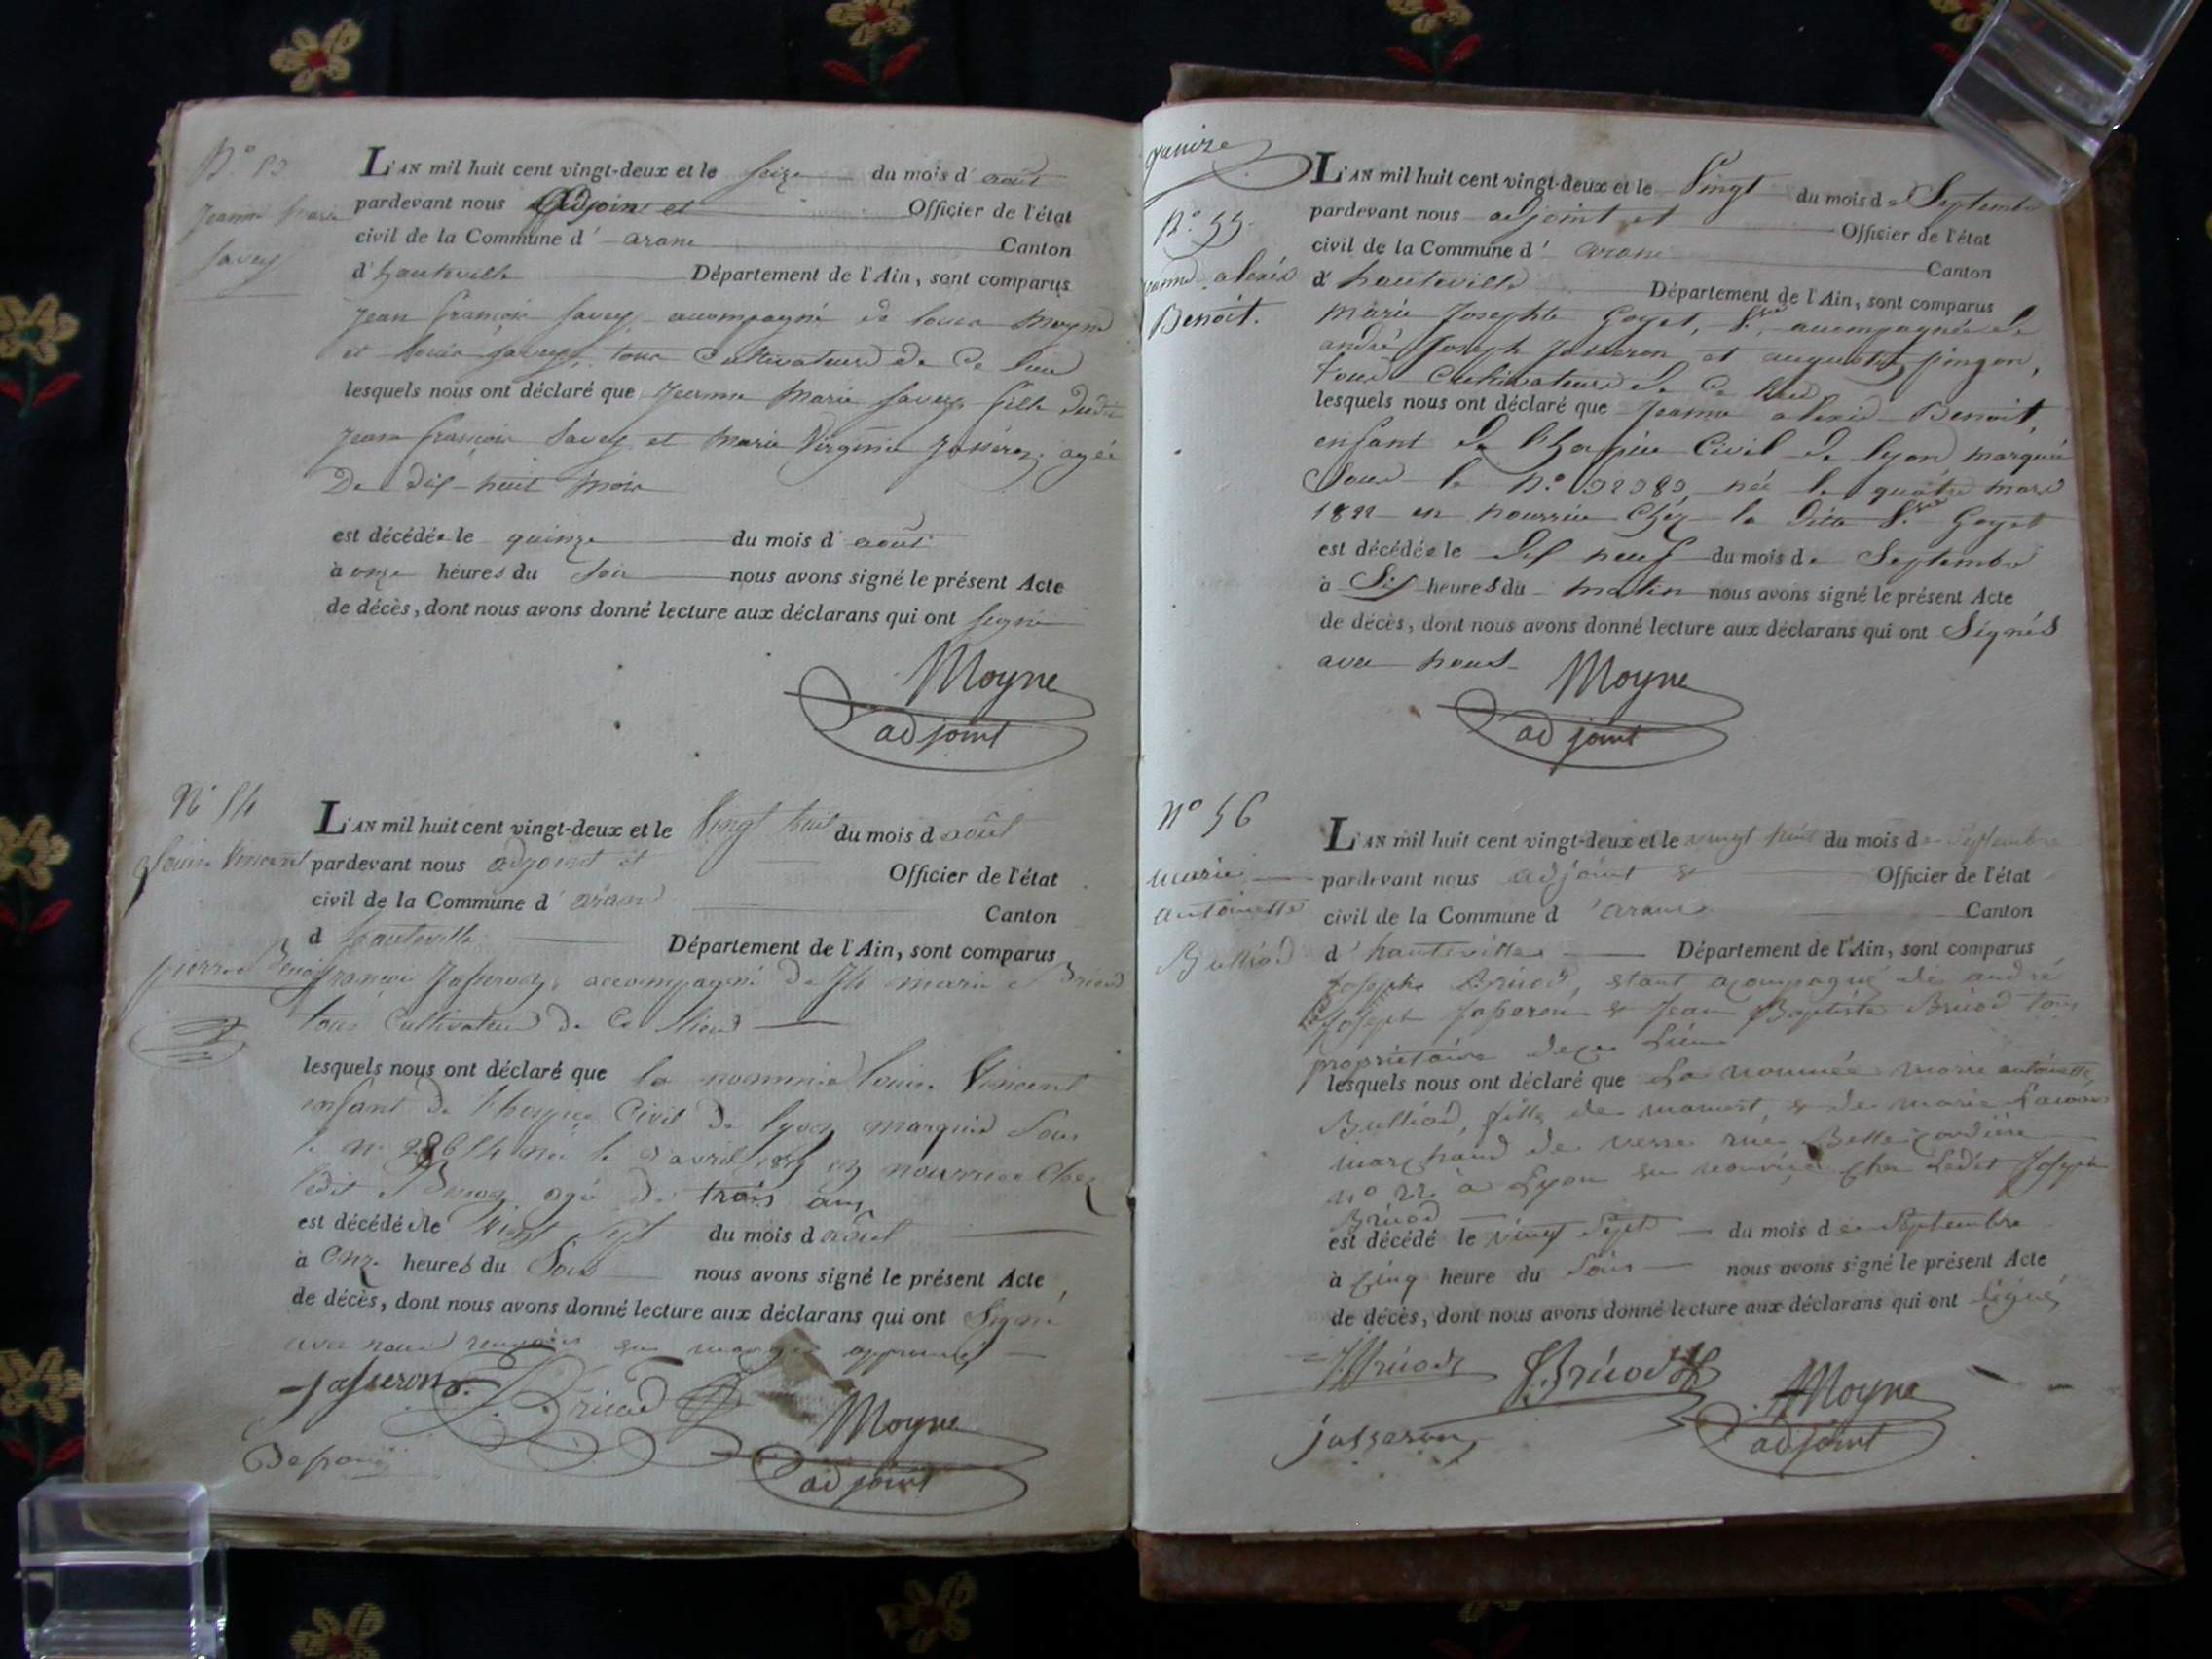 N.°
Jeanne Marie
Savey
L'AN mil huit cent vingt-deux et le seize du mois d'août
pardevant nous adjoint et Officier de l'état
civil de la Commune d'arane Canton
d'hauteville Département de l'Ain, sont comparus
Jean françois Savey, accompagné de louis Moyne
et louis Savey, tous Cultivateurs de Ce lieu
lesquels nous ont déclaré que Jeanne Marie Savey fille dudit
Jean françois Savey et Marie Virginie agée
De dix-huit mois
est décédée le quinze du mois d'août
à onze heures du Soir nous avons signé le présent Acte
de décès, dont nous avons donné lecture aux déclarans qui ont signé
Moyne
adjoint
N.° 54
Louise Vincent
L'AN mil huit cent vingt-deux et le Vingt huit du mois d'août
pardevant nous adjoint et Officier de l'état
civil de la Commune d'arane Canton
d'hauteville Département de l'Ain, sont comparus
pierre françois Jasseron, accompagné de marie Bruod
tous Cultivateurs de Ce lieu
lesquels nous ont déclaré que la nommée louise Vincent
enfant de l'hospice Civil de lyon marquée Sous
le n.° né le avril en nourrice Chez
ledit agé de trois ans
est décédée le Vingt Sept du mois d'août
à onze heures du Soir nous avons signé le présent Acte
de décès, dont nous avons donné lecture aux déclarans qui ont Signé
avec nous en marge approuvé
jasseron Bruod
Moyne
adjoint
quinze
N.° 55.
Jeanne alexis
Benoit.
L'AN mil huit cent vingt-deux et le Vingt du mois de Septembre
pardevant nous adjoint et Officier de l'état
civil de la Commune d'arane Canton
d'hauteville Département de l'Ain, sont comparus
Marie Josephte Goyet, accompagnée de
andré Joseph Jasseron et augustin pingon,
tous Cultivateurs de Ce lieu
lesquels nous ont déclaré que Jeanne alexis Benoit,
enfant de l'hospice Civil de lyon marquée
Sous le N.° née le quatre mars
1822 en nourrice Chez la dite Goyet
est décédée le dix neuf du mois de Septembre
à Six heures du matin nous avons signé le présent Acte
de décès, dont nous avons donné lecture aux déclarans qui ont Signés
avec nous
Moyne
adjoint
N° 56
Marie
antoinette
Bulliod
L'AN mil huit cent vingt-deux et le vingt huit du mois de Septembre
pardevant nous adjoint & Officier de l'état
civil de la Commune d'arane Canton
d'hauteville Département de l'Ain, sont comparus
Josephe Bruod, étant acompagné de andré
Joseph Jasseron & Jean Baptiste Bruod tous
propriétaire de ce Lieu
lesquels nous ont déclaré que La nommée Marie antoinette
Bulliod, fille de & de Marie
marchand de verre rue Belle cordière
n° 22 à Lyon en nourrice chez Ledit Joseph
Bruod
est décédé le vingt Sept du mois de Septembre
à Cinq heure du Soir nous avons signé le présent Acte
de décès, dont nous avons donné lecture aux déclarans qui ont signé
Bruod Bruod
Moyne
jasseron
adjoint